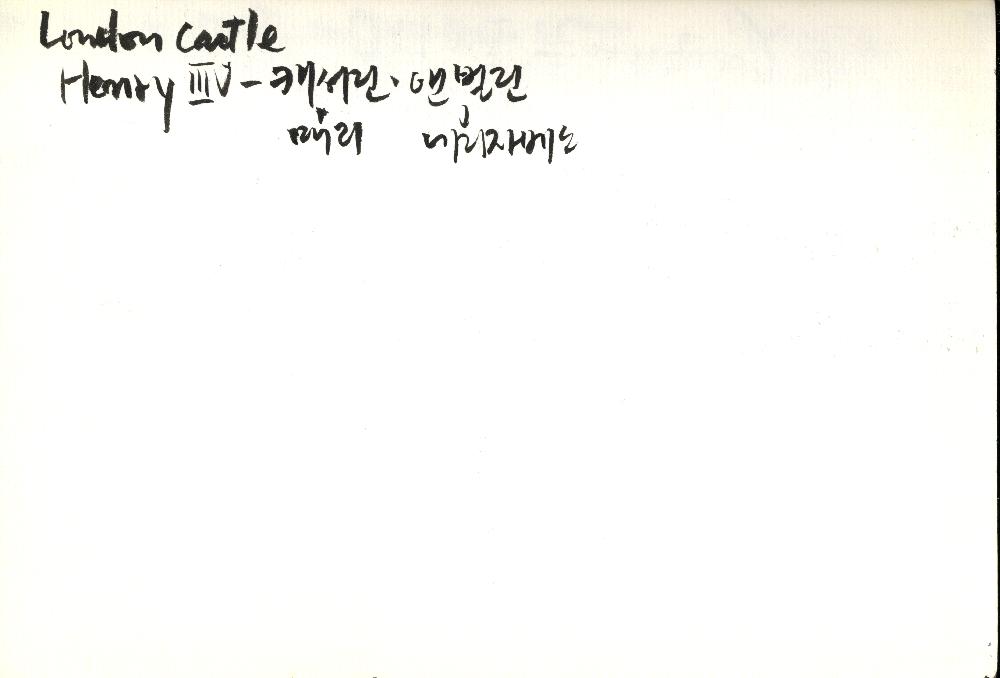 London castle
Henry IIIV - 캐서린·앤 벌린
메리 에리자베스